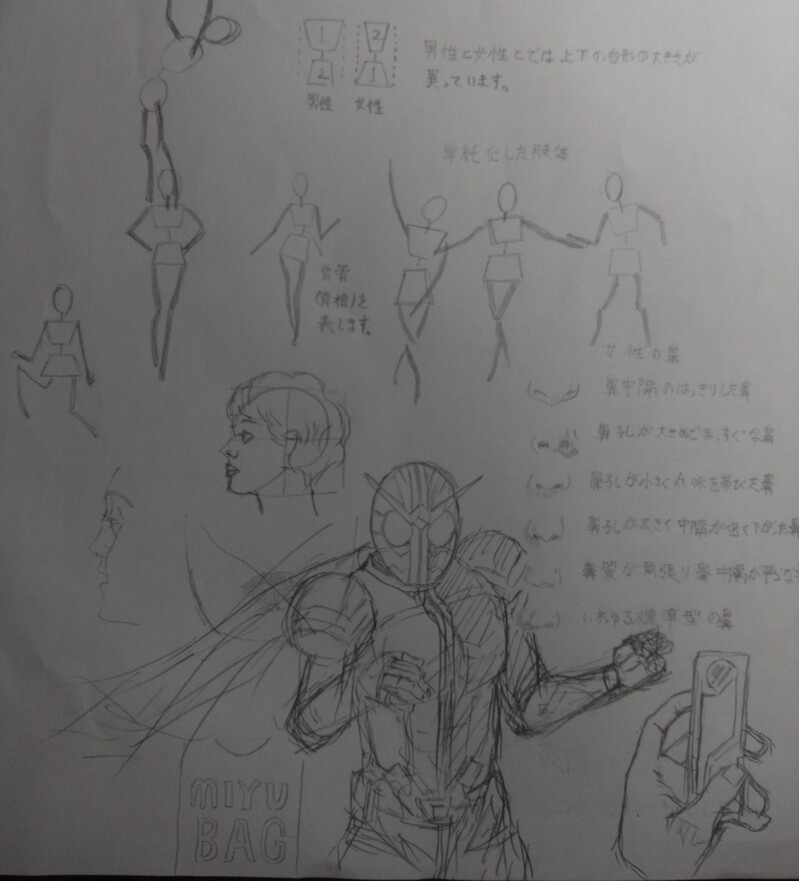 1
2
男性
2
1
女性
男性と女性とでは上下の台形の大きさが
異っています。
単純化した肢体
背骨
(脊椎)を
表します。
女性の鼻
鼻中隔のはっきりした鼻
鼻孔が大きめでまっすぐな鼻
鼻孔が小さく丸味を帯びた鼻
鼻孔が大きく中隔が低く下がった鼻
鼻翼が角張り鼻中隔が平らな
いわゆる標準型の鼻
MIYU
BAG